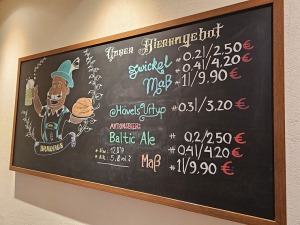 Unser Bierangebot
Zwickel *0.2l/2.50€
*0.4l/4.20€
Maß *1l/9.90€
Hövels Urtyp *0.3l/3.20€
AKTIONSBIER:
Baltic Ale *0.2/2.50€
*0.4l/4.20€
Maß *1l/9.90€